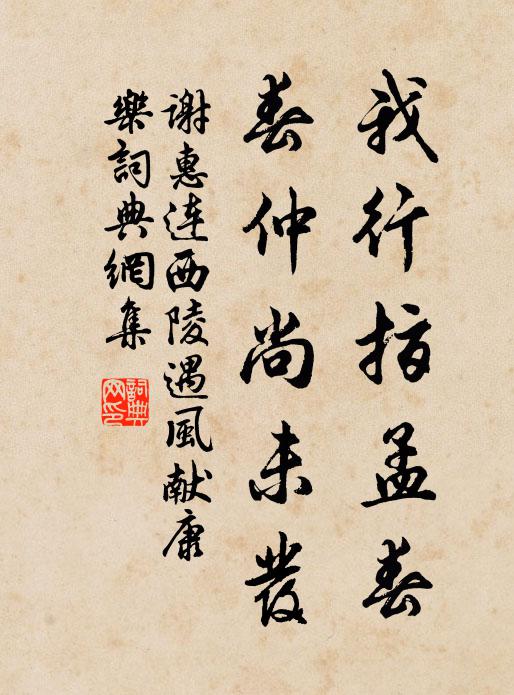 我行指孟春
春仲尚未發
謝惠连西陵遇風献康
樂詞典網集
詞典网印